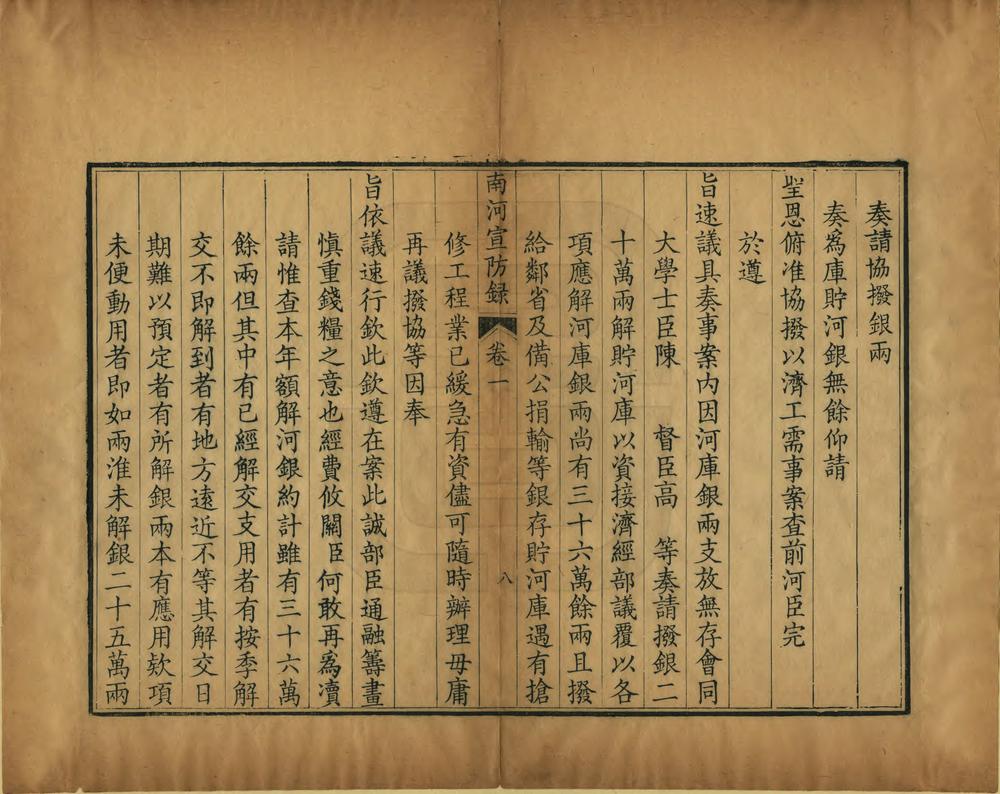 奏請協撥銀兩
奏爲庫貯河銀無餘仰請
聖恩俯准協撥以濟工需事案查前河臣完
於遵
旨速議具奏事案內因河庫銀兩支放無存會同
大學士臣陳 督臣高 等奏請撥銀二
十萬兩解貯河庫以資接濟經部議覆以各
項應解河庫銀兩尚有三十六萬餘兩且撥
給鄰省及備公捐輸等銀存貯河庫遇有搶
南河宣防録 卷一 八
修工程業已緩急有資儘可隨時辦理毋庸
再議撥協等因奉
旨依議速行欽此欽遵在案此誠部臣通融籌畫
慎重錢糧之意也經費攸關臣何敢再爲瀆
請惟查本年額解河銀約計雖有三十六萬
餘兩但其中有已經解交支用者有按季解
交不即解到者有地方遠近不等其解交日
期難以預定者有所解銀兩本有應用欵項
未便動用者即如兩淮未解銀二十五萬兩